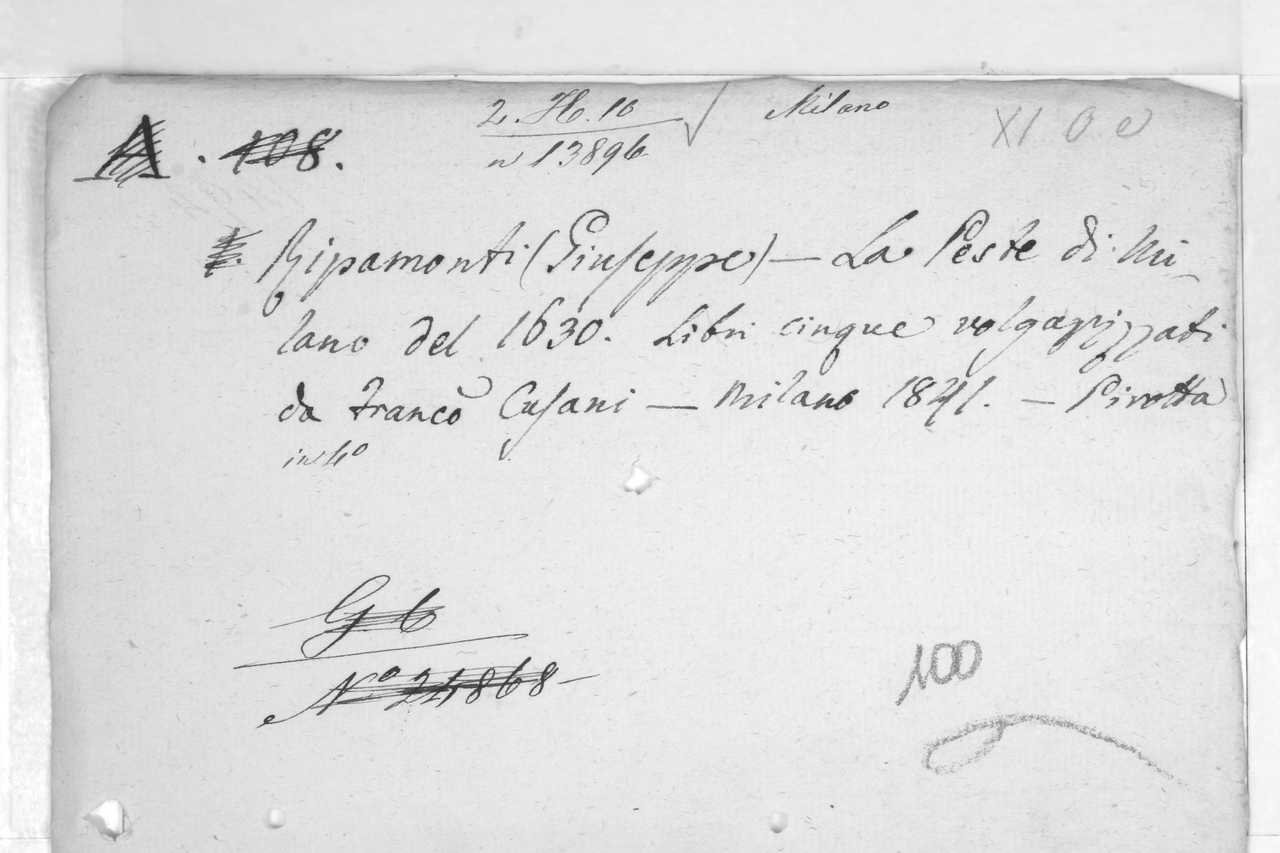 2. H. 10 √ Milano XI O e
A. 108. n 13896
Ripamonti (Giuseppe) — La Peste di Mi-
lano del 1630. Libri cinque volgarizzati
da Franco Cusani — Milano 1841. — Pirotta
in 4º
G 6
Nº 24868
100